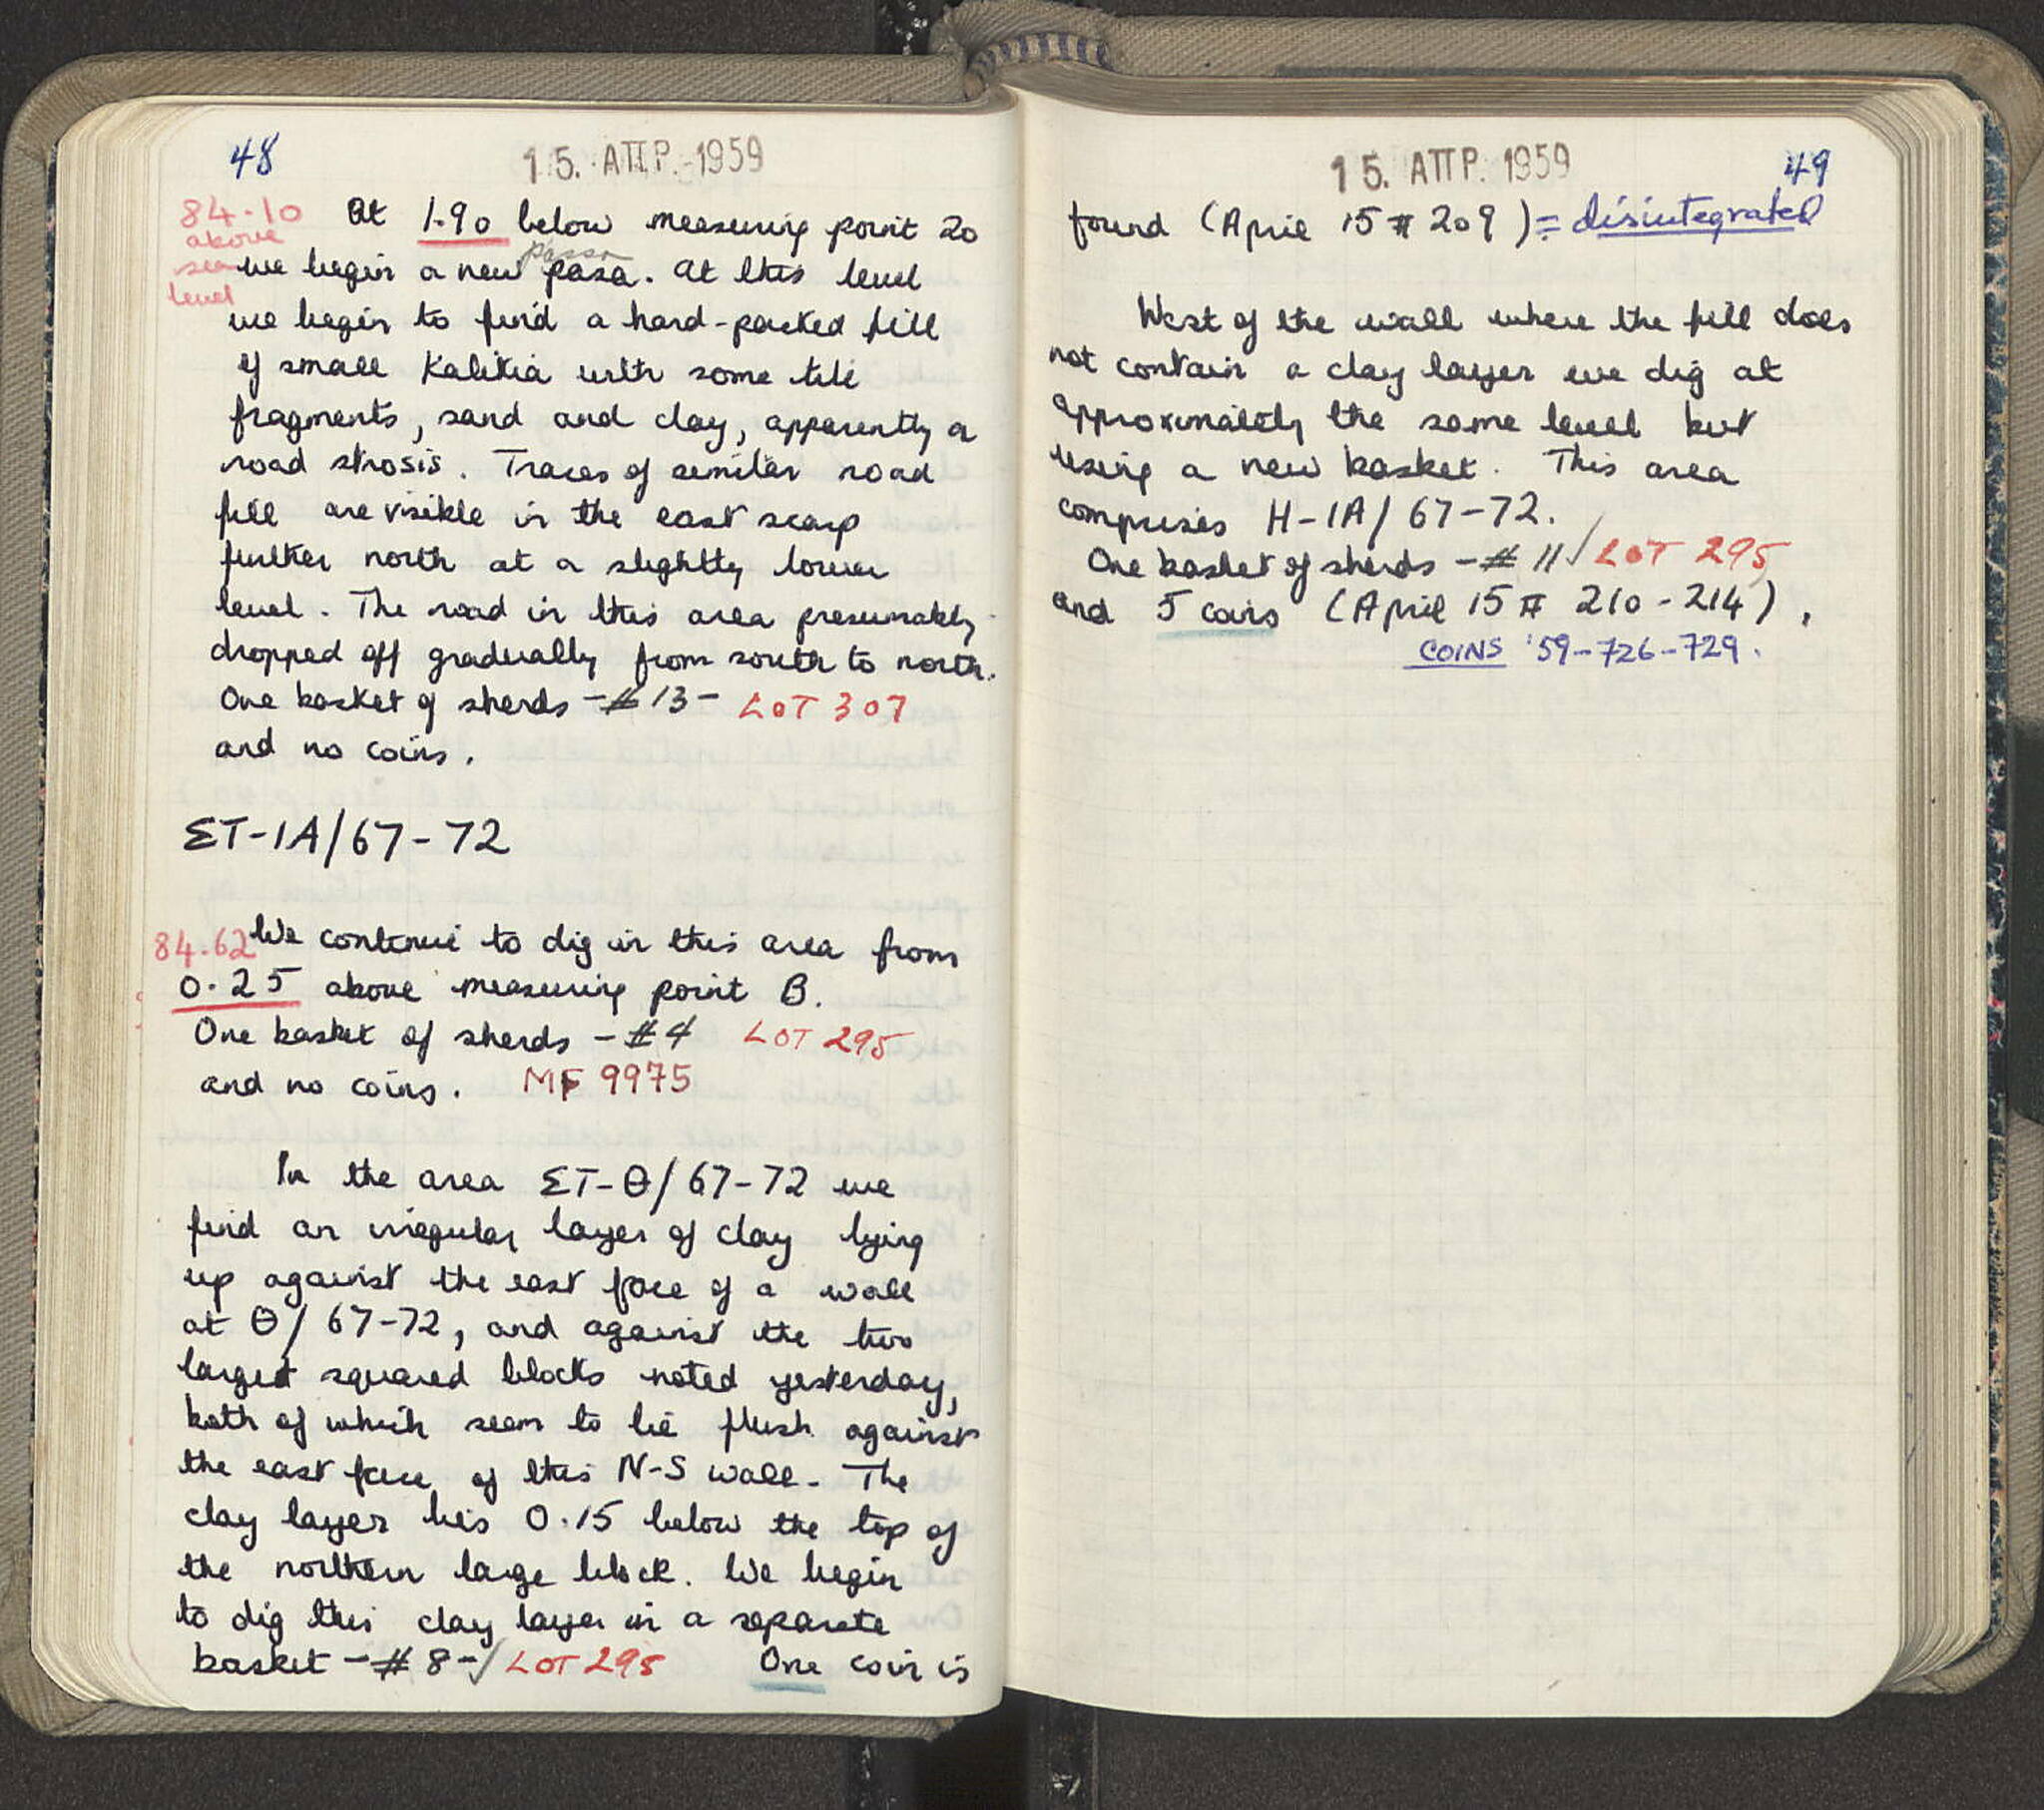 48
15. ΑΠΡ. 1959
84.10
above
sea
level
At 1.90 below measuring point 20
passa
we begin a new pasa. At this level
we begin to find a hard-packed fill
of small Kalikia with some tile
fragments, sand and clay, apparently a
road strosis. Traces of similar road
fill are visible in the east scarp
further north at a slightly lower
level. The road in this area presumably
dropped off gradually from south to north.
One basket of sherds - # 13 - LOT 307
and no coins.
ΣΤ-ΙΑ/67-72
84.62 We continue to dig in this area from
0.25 above measuring point B.
One basket of sherds - # 4 LOT 295
and no coins. MF 9975
In the area ΣΤ-Θ/67-72 we
find an irregular layer of clay lying
up against the east face of a wall
at Θ/67-72, and against the two
larged squared blocks noted yesterday,
both of which seem to lie flush against
the east face of this N-S wall. The
clay layer lies 0.15 below the top of
the northern large block. We begin
to dig this clay layer in a separate
basket - # 8 - / LOT 295 One coin is
15. ΑΠΡ. 1959
49
found (April 15 # 209) = disintegrated
West of the wall where the fill does
not contain a clay layer we dig at
approximately the same level but
using a new basket. This area
comprises H-ΙΑ/67-72.
One basket of sherds - # 11 / LOT 295
and 5 coins (April 15 # 210-214).
COINS '59-726-729.